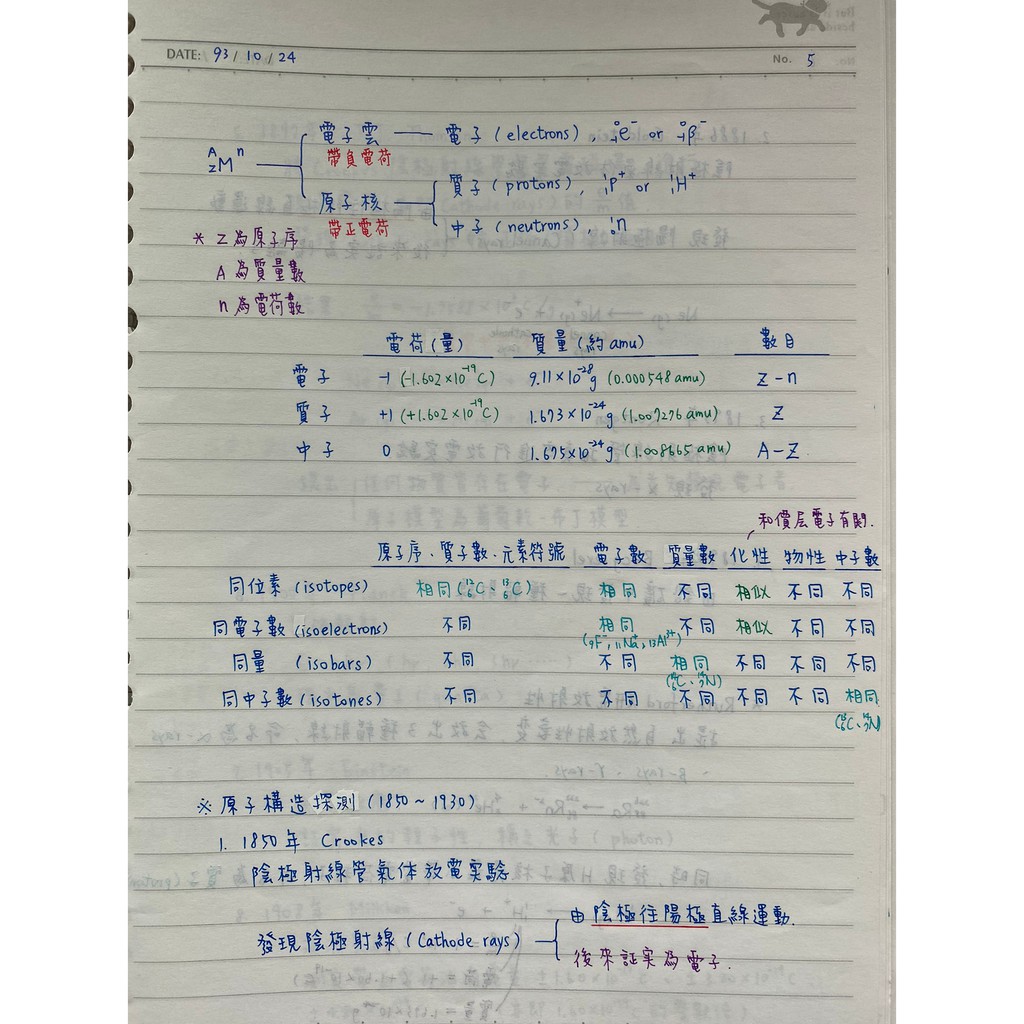 DATE: 93 / 10 / 24 No. 5
電子雲 — 電子 (electrons), ⁰₋₁e⁻ or ⁰₋₁β⁻
ᴬzMⁿ 帶負電荷
質子 (protons), ¹₁P⁺ or ¹₁H⁺
原子核
帶正電荷 中子 (neutrons), ¹₀n
* Z為原子序
A為質量數
n為電荷數
電荷(量) 質量(約amu) 數目
電子 -1 (-1.602×10⁻¹⁹C) 9.11×10⁻²⁸g (0.000548amu) Z-n
質子 +1 (+1.602×10⁻¹⁹C) 1.673×10⁻²⁴g (1.007276amu) Z
中子 0 1.675×10⁻²⁴g (1.008665amu) A-Z
和價层電子有関.
原子序、質子數、元素符號 電子數 質量數 化性 物性 中子數
同位素 (isotopes) 相同 (¹²₆C、¹³₆C) 相同 不同 相似 不同 不同
同電子數 (isoelectrons) 不同 相同 不同 相似 不同 不同
(₉F⁻, ₁₁Na⁺, ₁₃Al³⁺)
同量 (isobars) 不同 不同 相同 不同 不同 不同
同中子數 (isotones) 不同 不同 不同 不同 不同 相同
※ 原子構造探測 (1850~1930)
1. 1850年 Crookes
陰極射線管氣体放電実驗
由陰極往陽極直線運動.
發現陰極射線 (Cathode rays)
後來証実為電子.